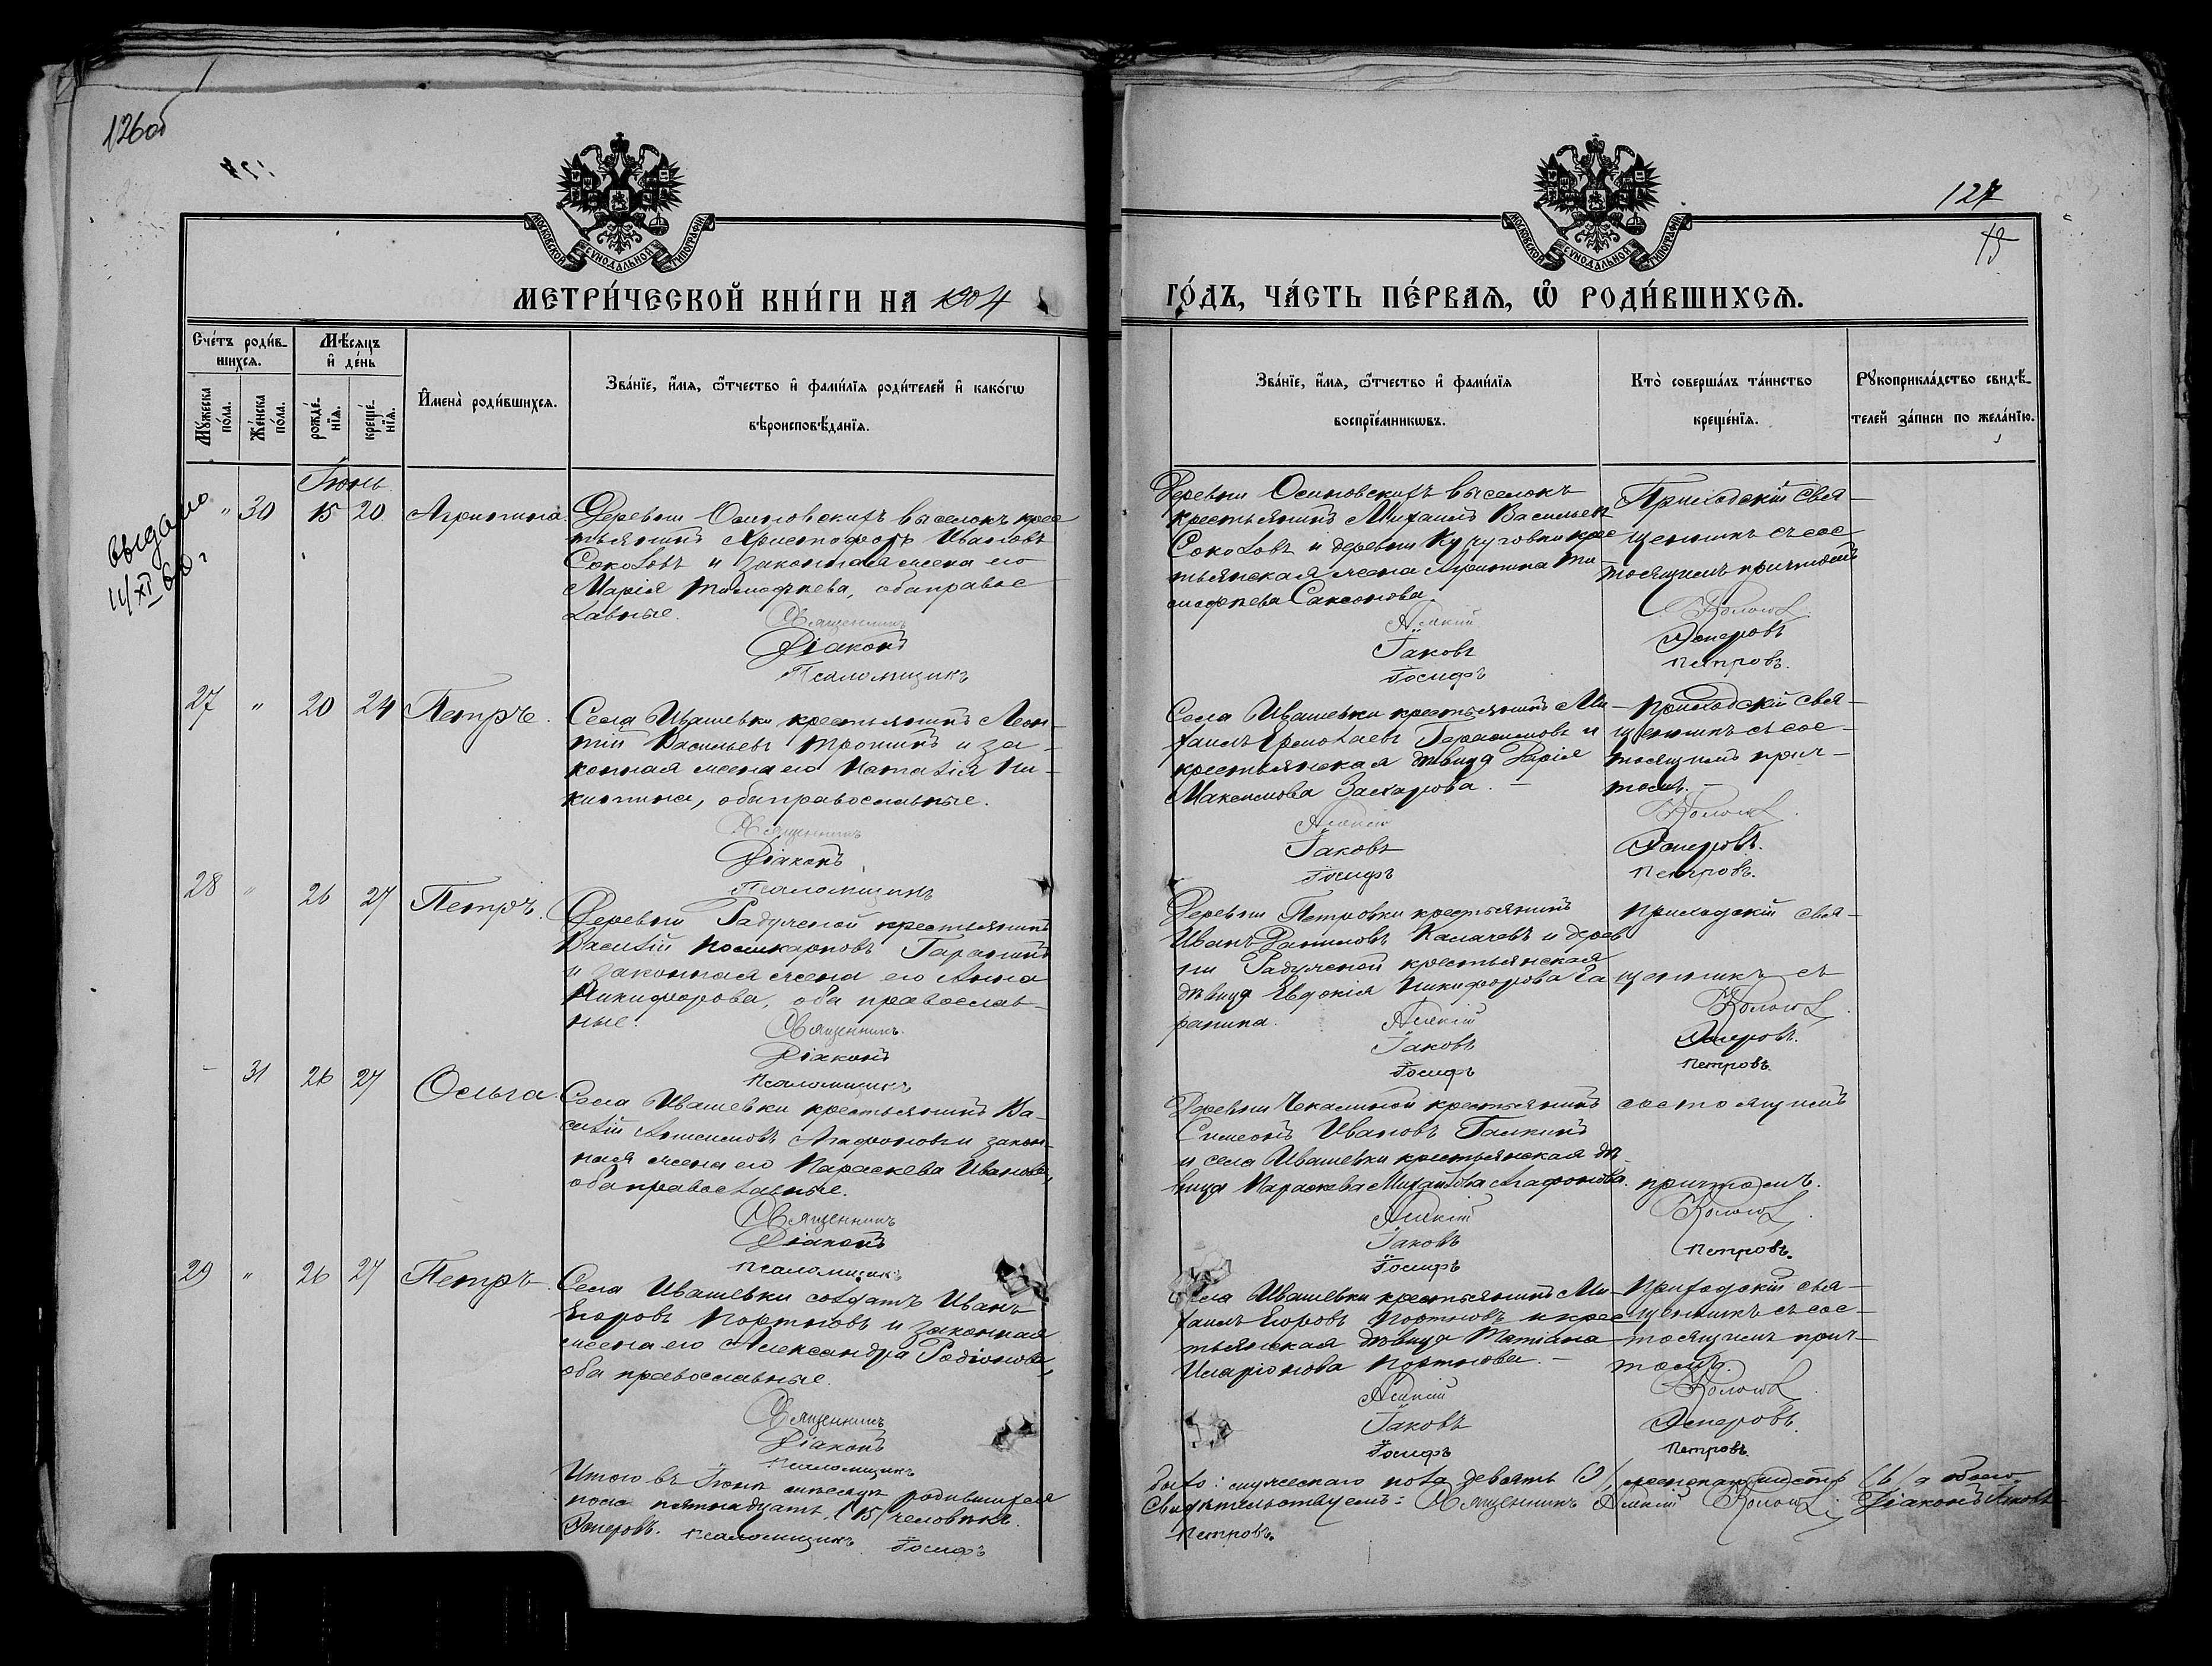 126об
127
13
МОСКОВСКОЙ СѴНОДАЛЬНОЙ ТИПОГРАФІИ
МОСКОВСКОЙ СѴНОДАЛЬНОЙ ТИПОГРАФІИ
МЕТРИ́ЧЕСКОЙ КНИ́ГИ НА 1904
ГО́ДЪ, ЧА́СТЬ ПЕ́РВАѦ, Ѡ҆ РОДИ́ВШИХСѦ.
Сче́тъ роди́в-
шихсѧ.
Мѣ́сѧцъ
и҆ де́нь
Мꙋ́жеска
по́ла.
Же́нска
по́ла.
рожде́-
нїѧ.
креще́-
нїѧ.
И҆мена̀ роди́вшихсѧ.
Зва́нїе, и҆́мѧ, ѻ҆́тчество и҆ фами́лїѧ роди́телей и҆ како́гѡ
вѣроисповѣ́данїѧ.
Зва́нїе, и҆́мѧ, ѻ҆́тчество и҆ фами́лїѧ
воспрїе́мникѡвъ.
Кто̀ соверша́лъ та́инство
креще́нїѧ.
Рꙋкоприкла́дство свидѣ́-
телей за́писи по жела́нїю.
Іюнь
выдано
11/XI 60 г
" 30 15 20 Агрипина.
Деревни Осиновскихъ выселокъ крес
тьянинъ Христофоръ Ивановъ
Соколовъ и законная жена его
Марія Тимофѣева, оба правос
лавные.
Священникъ
Діаконъ
Псаломщикъ
Деревни Осиновскихъ выселокъ
крестьянинъ Михаилъ Васильевъ
Соколовъ и деревни Кучуговки крес
тьянская жена Агрипина Ти-
мофѣева Саксонова.
Алексій
Іаковъ
Іосифъ
Приходскій свя-
щенникъ съ сос-
тоящимъ причтомъ
Эсперовъ
Петровъ.
27 " 20 24 Петръ.
Села Ивашевки крестьянинъ Леон-
тій Васильевъ Тронинъ и за-
конная жена его Наталія Ни-
китина, оба православные.
Священникъ
Діаконъ
Псаломщикъ
Села Ивашевки крестьянинъ Ми-
хаилъ Ермолаевъ Герасимовъ и
крестьянская дѣвица Дарія
Максимова Захарова. -
Алексій
Іаковъ
Іосифъ
Приходскій свя-
щенникъ съ сос-
тоящимъ прич-
томъ. -
Эсперовъ.
Петровъ.
28 " 26 27 Петръ.
Деревни Радученой крестьянинъ
Василій Поликарповъ Гаранинъ
и законная жена его Анна
Никифорова, оба православ-
ные.
Священникъ.
Діаконъ
Псаломщикъ
Деревни Петровки крестьянинъ
Иванъ Даниловъ Калачевъ и дерев
ни Радученой крестьянская
дѣвица Евдокія Никифорова Га
ранина.
Алексій
Іаковъ
Іосифъ
Приходскій свя-
щенникъ съ
Эсперовъ.
Петровъ.
- 31 26 27 Ольга.
Села Ивашевки крестьянинъ Ва-
силій Анисимовъ Агафоновъ и закон-
ная жена его Параскева Иванова,
оба православные.
Священникъ
Діаконъ
Псаломщикъ
Деревни Чекалиной крестьянинъ
Симеонъ Ивановъ Галкинъ
и села Ивашевки крестьянская дѣ-
вица Параскева Михайлова Агафонова.
Алексій
Іаковъ
Іосифъ
состоящимъ
причтомъ.
Петровъ.
29 " 26 27 Петръ
Села Ивашевки солдатъ Иванъ
Егоровъ Портновъ и законная
жена его Александра Родіонова,
оба православные.
Священникъ
Діаконъ
Псаломщикъ
Села Ивашевки крестьянинъ Ми-
хаилъ Егоровъ Портновъ и крес
тьянская дѣвица Татіана
Иларіонова Портнова. -
Алексій
Іаковъ
Іосифъ
Приходскій свя-
щенникъ съ сос-
тоящимъ прич-
томъ.
Эсперовъ.
Петровъ.
Итого въ Іюнѣ мѣсяцѣ родившихся
было: мужескаго пола девять (9), женскаго шесть (6), а обоего
пола пятнадцать (15) человѣкъ.
Свидѣтельствуемъ: Священникъ Алексій Діаконъ Іаковъ
Эсперовъ. Псаломщикъ Іосифъ
Петровъ.